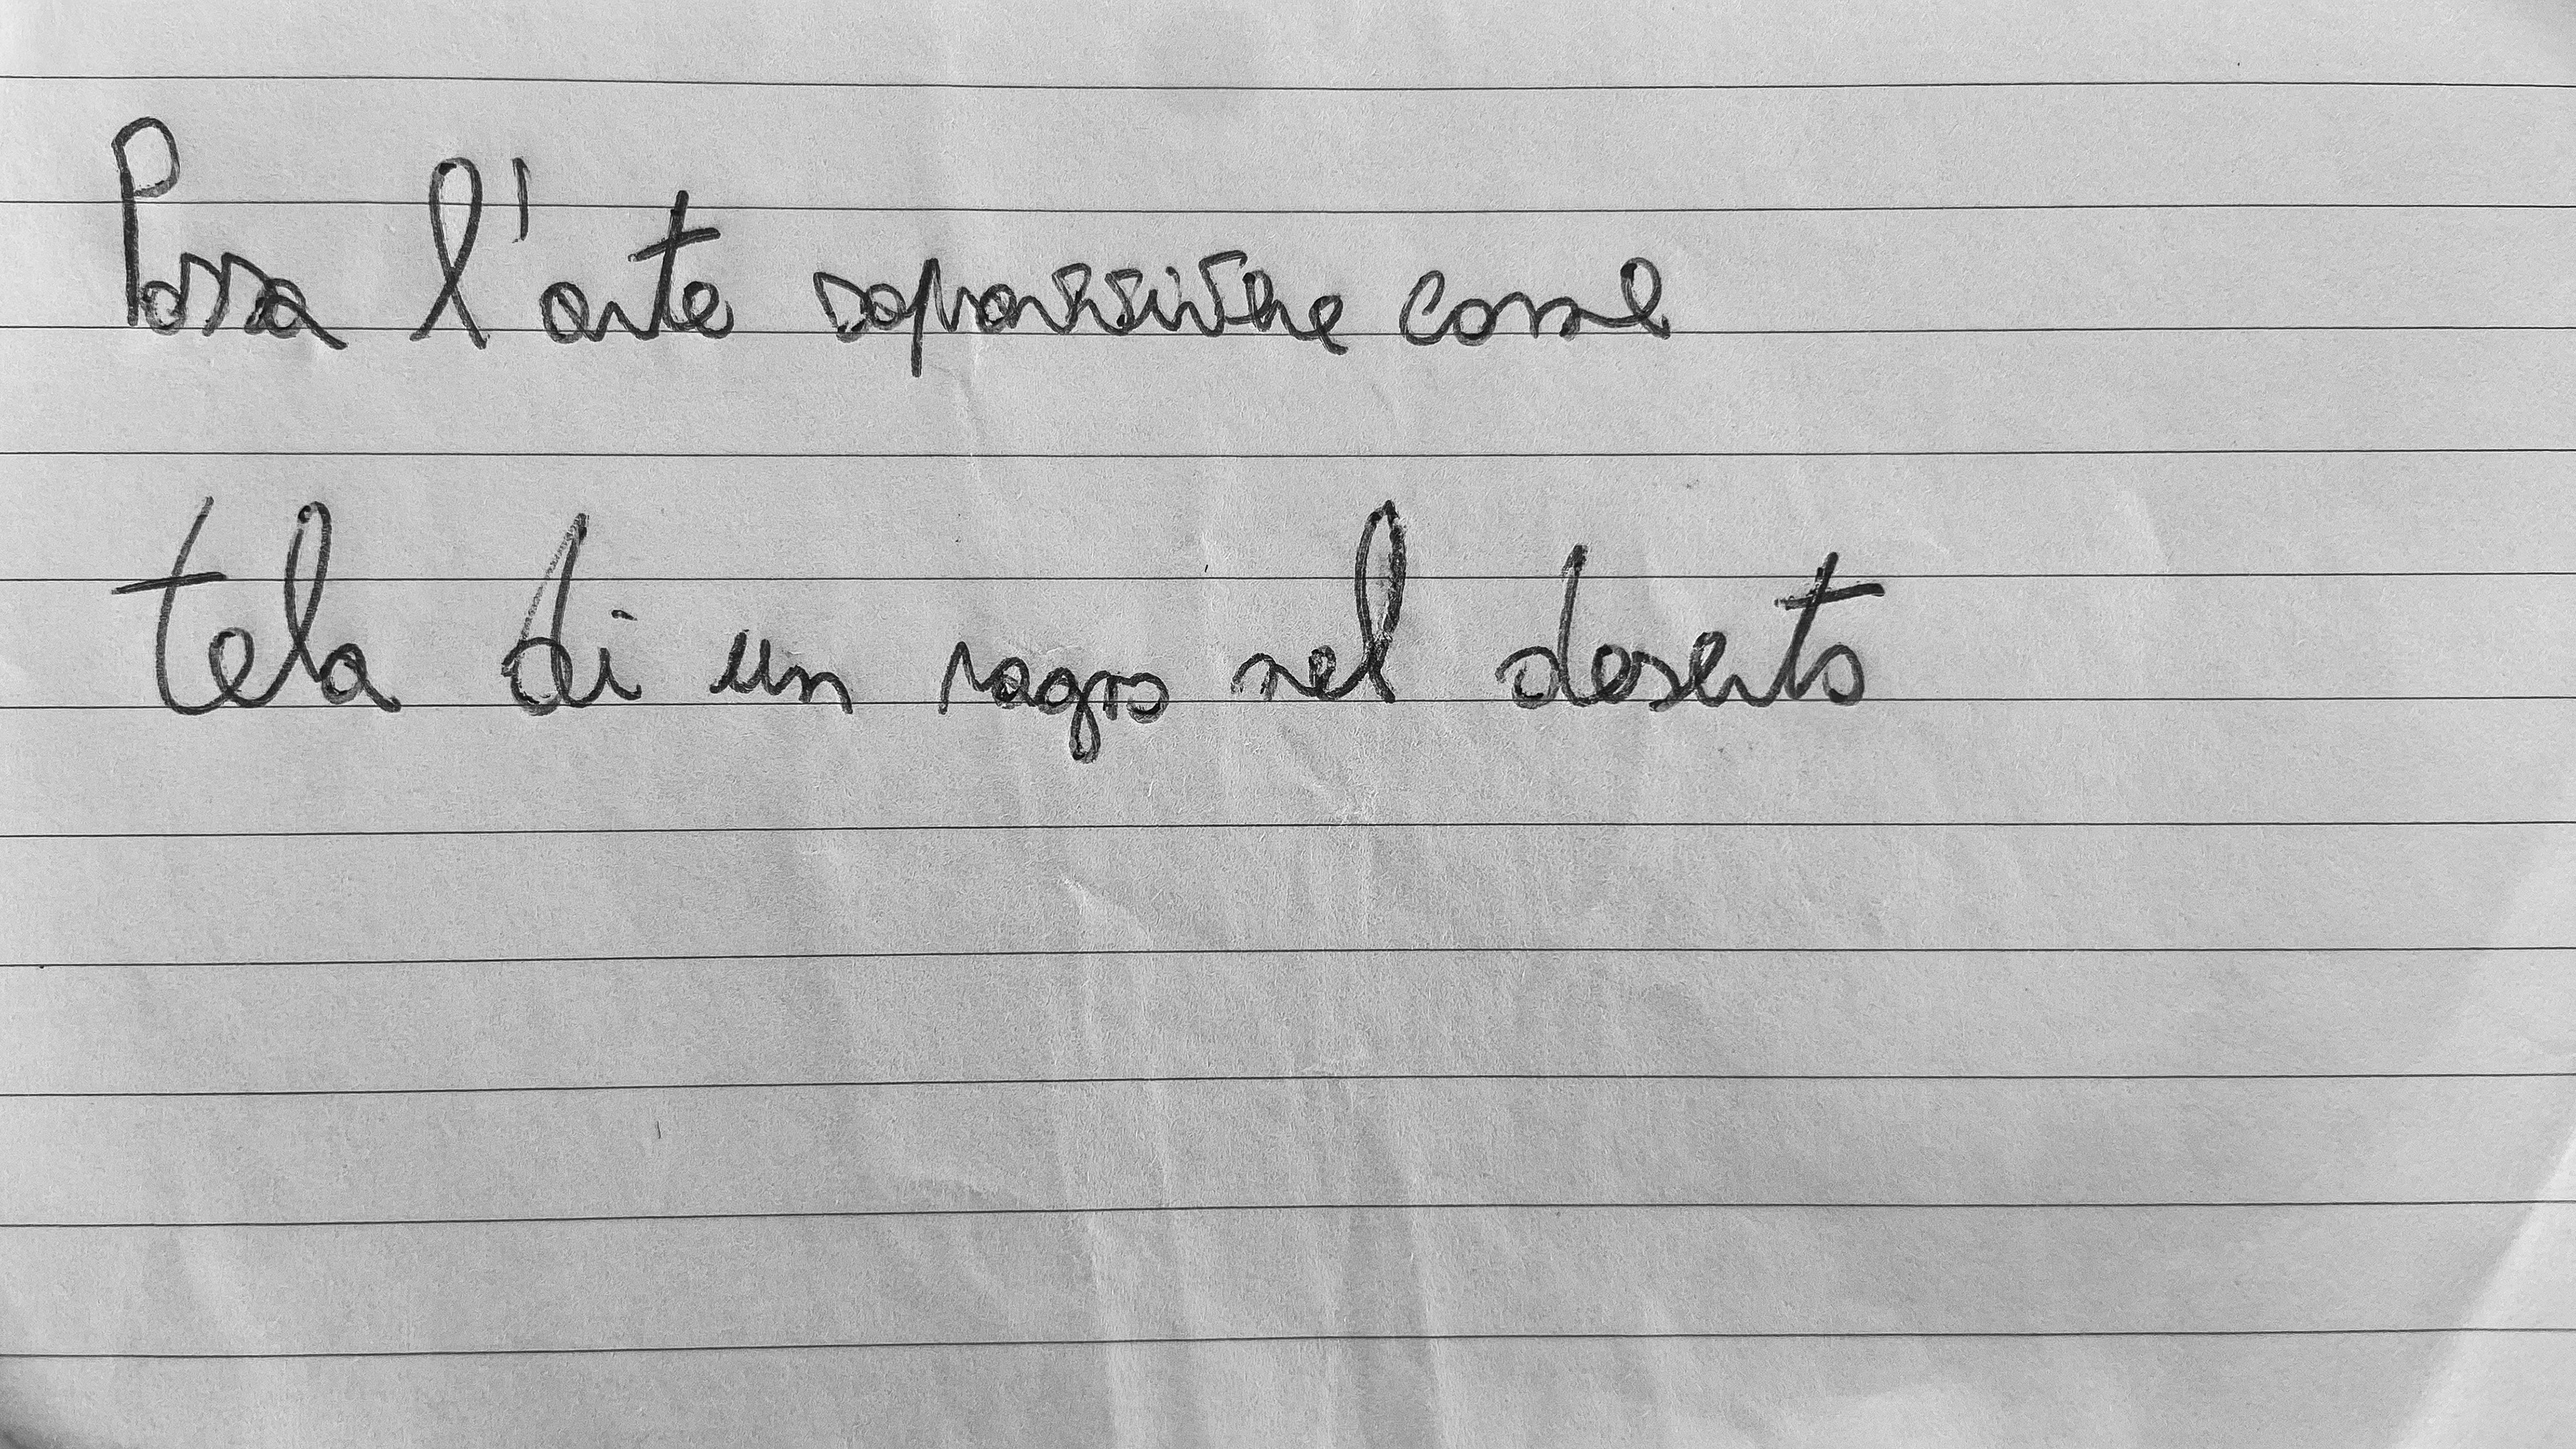 Possa l'arte sopravvivere come
tela di un ragno nel deserto